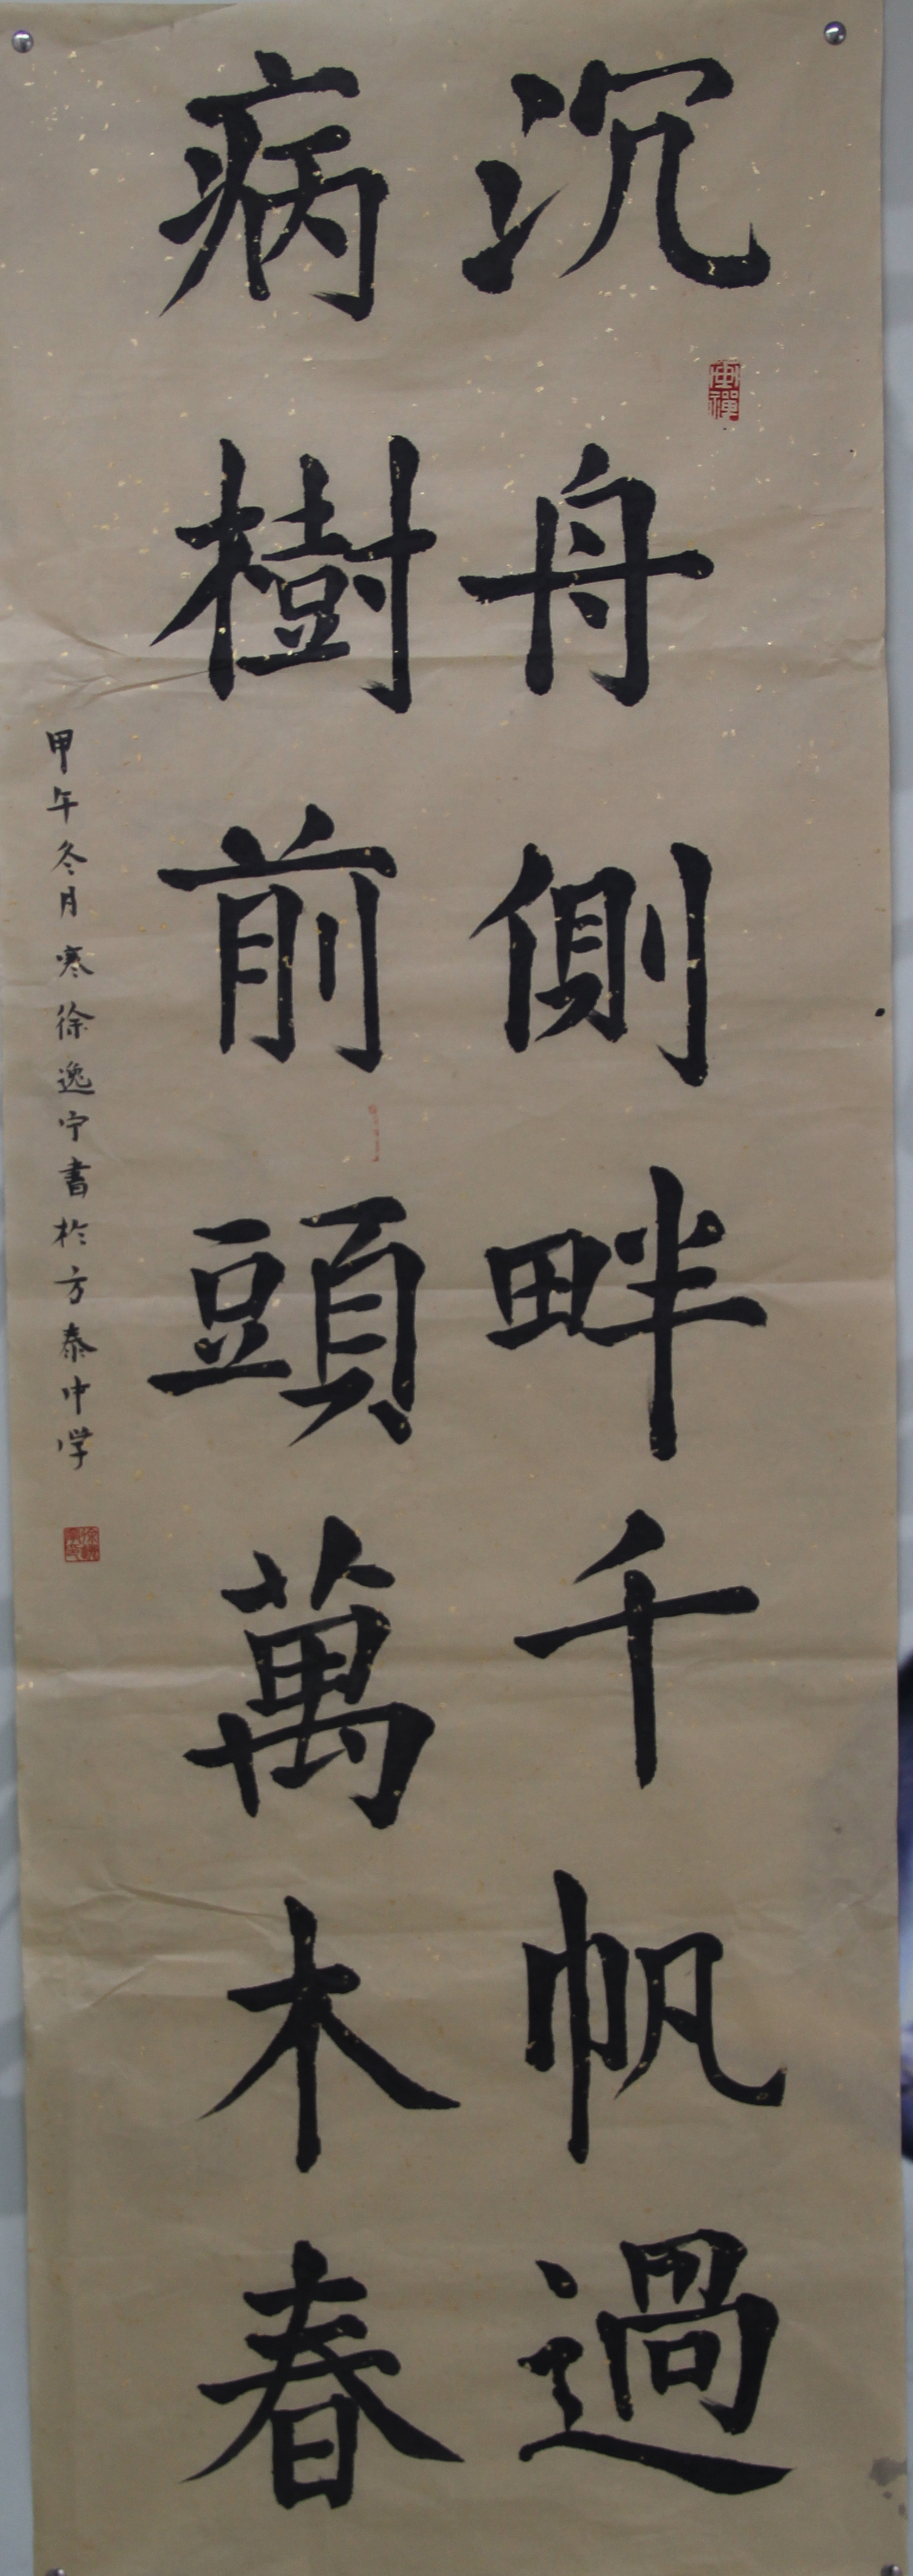 沉舟側畔千帆過
病樹前頭萬木春
甲午冬月寒徐逸宁書於方泰中学